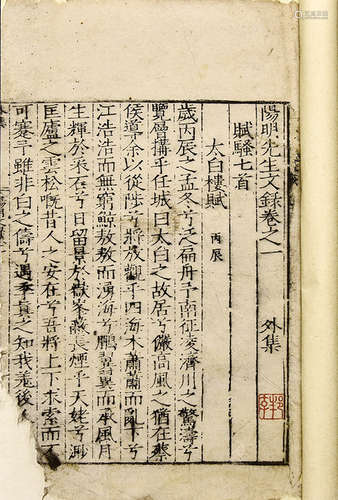 陽明先生文錄卷之一　外集
賦騷七首
太白樓賦　丙辰
歲丙辰之孟冬兮泛扁舟予南征凌濟川之驚濤兮
覽層構乎任城曰太白之故居兮儼高風之猶在蔡
侯導余以從陟兮將放觀乎四海木蕭蕭而亂下兮
江浩浩而無窮鯨敖敖而湧海兮鵬翼翼而承風月
生輝於采石兮日留景於嶽峯蔽長煙乎天姥兮渺
匡廬之雲松慨昔人之安在兮吾將上下求索而不
可蹇予雖非白之儔兮遇季真之知我羗後人